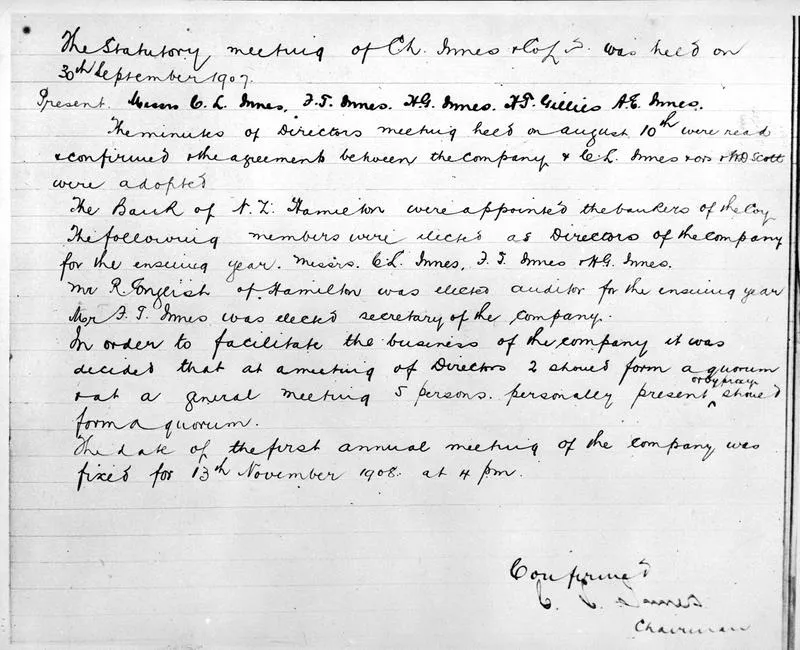 The Statutory meeting of Ch. Innes & Co Ld. was held on
30th September 1907.
Present. Messrs C. L. Innes, F. T. Innes. H G. Innes. H. T. Gillies A. E. Innes.
The minutes of Directors meeting held on august 10th were read
& confirmed & the agreements between the company & C L. Innes & ors & W D Scott
were adopted
The Bank of N. Z. Hamilton were appointed the bankers of the Coy
The following members were elected as Directors of the company
for the ensuing year. Messrs. C L. Innes, F. T. Innes & H G. Innes.
Mr R. English of Hamilton was elected auditor for the ensuing year
Mr F. T. Innes was elected secretary of the company.
In order to facilitate the business of the company it was
decided that at a meeting of Directors 2 should form a quorum
& at a general meeting 5 persons. personally present or by proxy should
form a quorum.
The date of the first annual meeting of the company was
fixed for 13th November 1908. at 4 pm.
Confirmed
C. L. Innes
Chairman